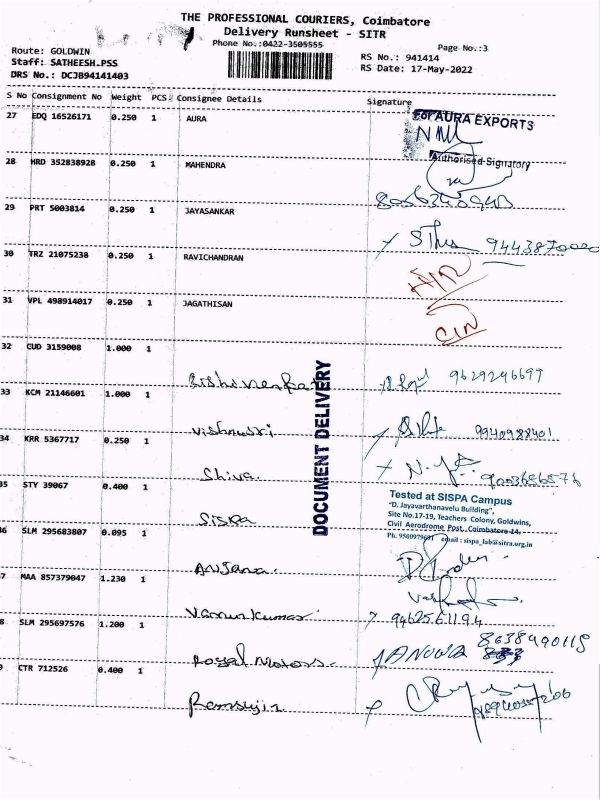 THE PROFESSIONAL COURIERS, Coimbatore
Delivery Runsheet - SITR
Phone No.:0422-3505555
Page No.:3
Route: GOLDWIN
Staff: SATHEESH.PSS
DRS No.: DCJB94141403
RS No.: 941414
RS Date: 17-May-2022
S No Consignment No Weight PCS Consignee Details Signature
27 EDQ 16526171 0.250 1 AURA
For AURA EXPORTS
Authorised Signatory
28 HRD 352838928 0.250 1 MAHENDRA
29 PRT 5003814 0.250 1 JAYASANKAR
30 TRZ 21075238 0.250 1 RAVICHANDRAN
31 VPL 498914017 0.250 1 JAGATHISAN
32 CUD 3159008 1.000 1
9629246697
33 KCM 21146601 1.000 1 Vishnusri
9940988401
34 KRR 5367717 0.250 1 Shiva
35 STY 39067 0.400 1 SISPA
Tested at SISPA Campus
"D. Jayavarthanavelu Building",
Site No.17-19, Teachers Colony, Goldwins,
Civil Aerodrome Post, Coimbatore-14.
email : sispa_lab@sitra.org.in
36 SLM 295683807 0.095 1 Anjana
37 MAA 857379047 1.230 1 Varun Kumar
9462561194
38 SLM 295697576 1.200 1 Royal Motors
8638490115
39 CTR 712526 0.400 1 Ramsujin
DOCUMENT DELIVERY